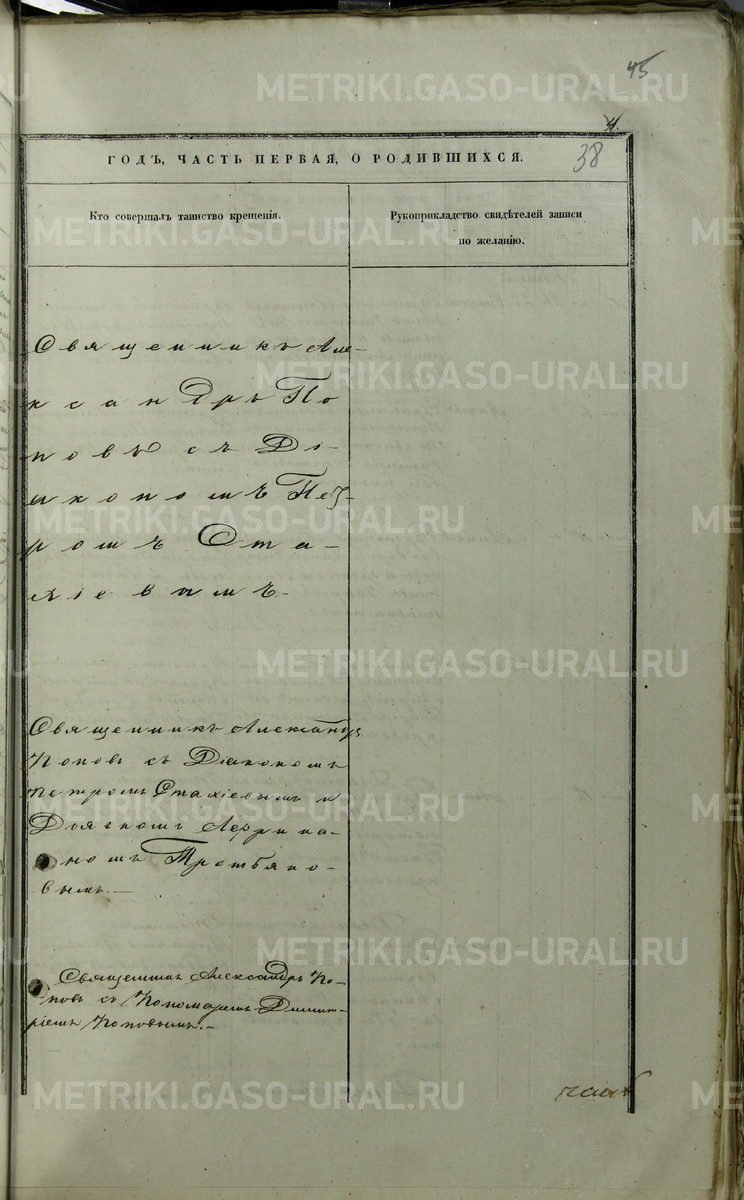 45
4.
ГОДЪ, ЧАСТЬ ПЕРВАЯ, О РОДИВШИХСЯ.
38
Кто совершалъ таинство крещенія.
Рукоприкладство свидѣтелей записи
по желанію.
Священникъ Але-
ксандръ По
повъ съ Ді-
акономъ Пет-
ромъ Ста-
хіевымъ.-
Священникъ Александръ
Поповъ съ Діакономъ
Петромъ Стахіевымъ и
Дьячкомъ
номъ Третьяко-
вымъ.-
Священникъ Александръ По-
повъ съ Пономаремъ Димит-
ріемъ Поповымъ.-
METRIKI.GASO-URAL.RU